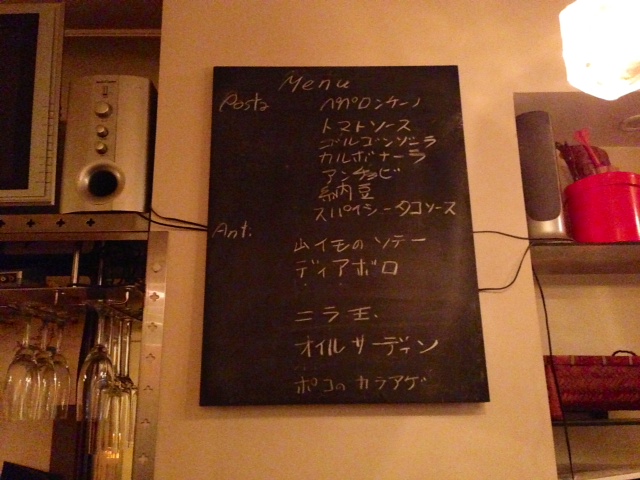 Menu
Pasta ペペロンチーノ
トマトソース
ゴルゴンゾーラ
カルボナーラ
アンチョビ
納豆
スパイシータコソース
Ant. 山イモのソテー
ディアボロ
ニラ玉
オイルサーディン
ポコのカラアゲ